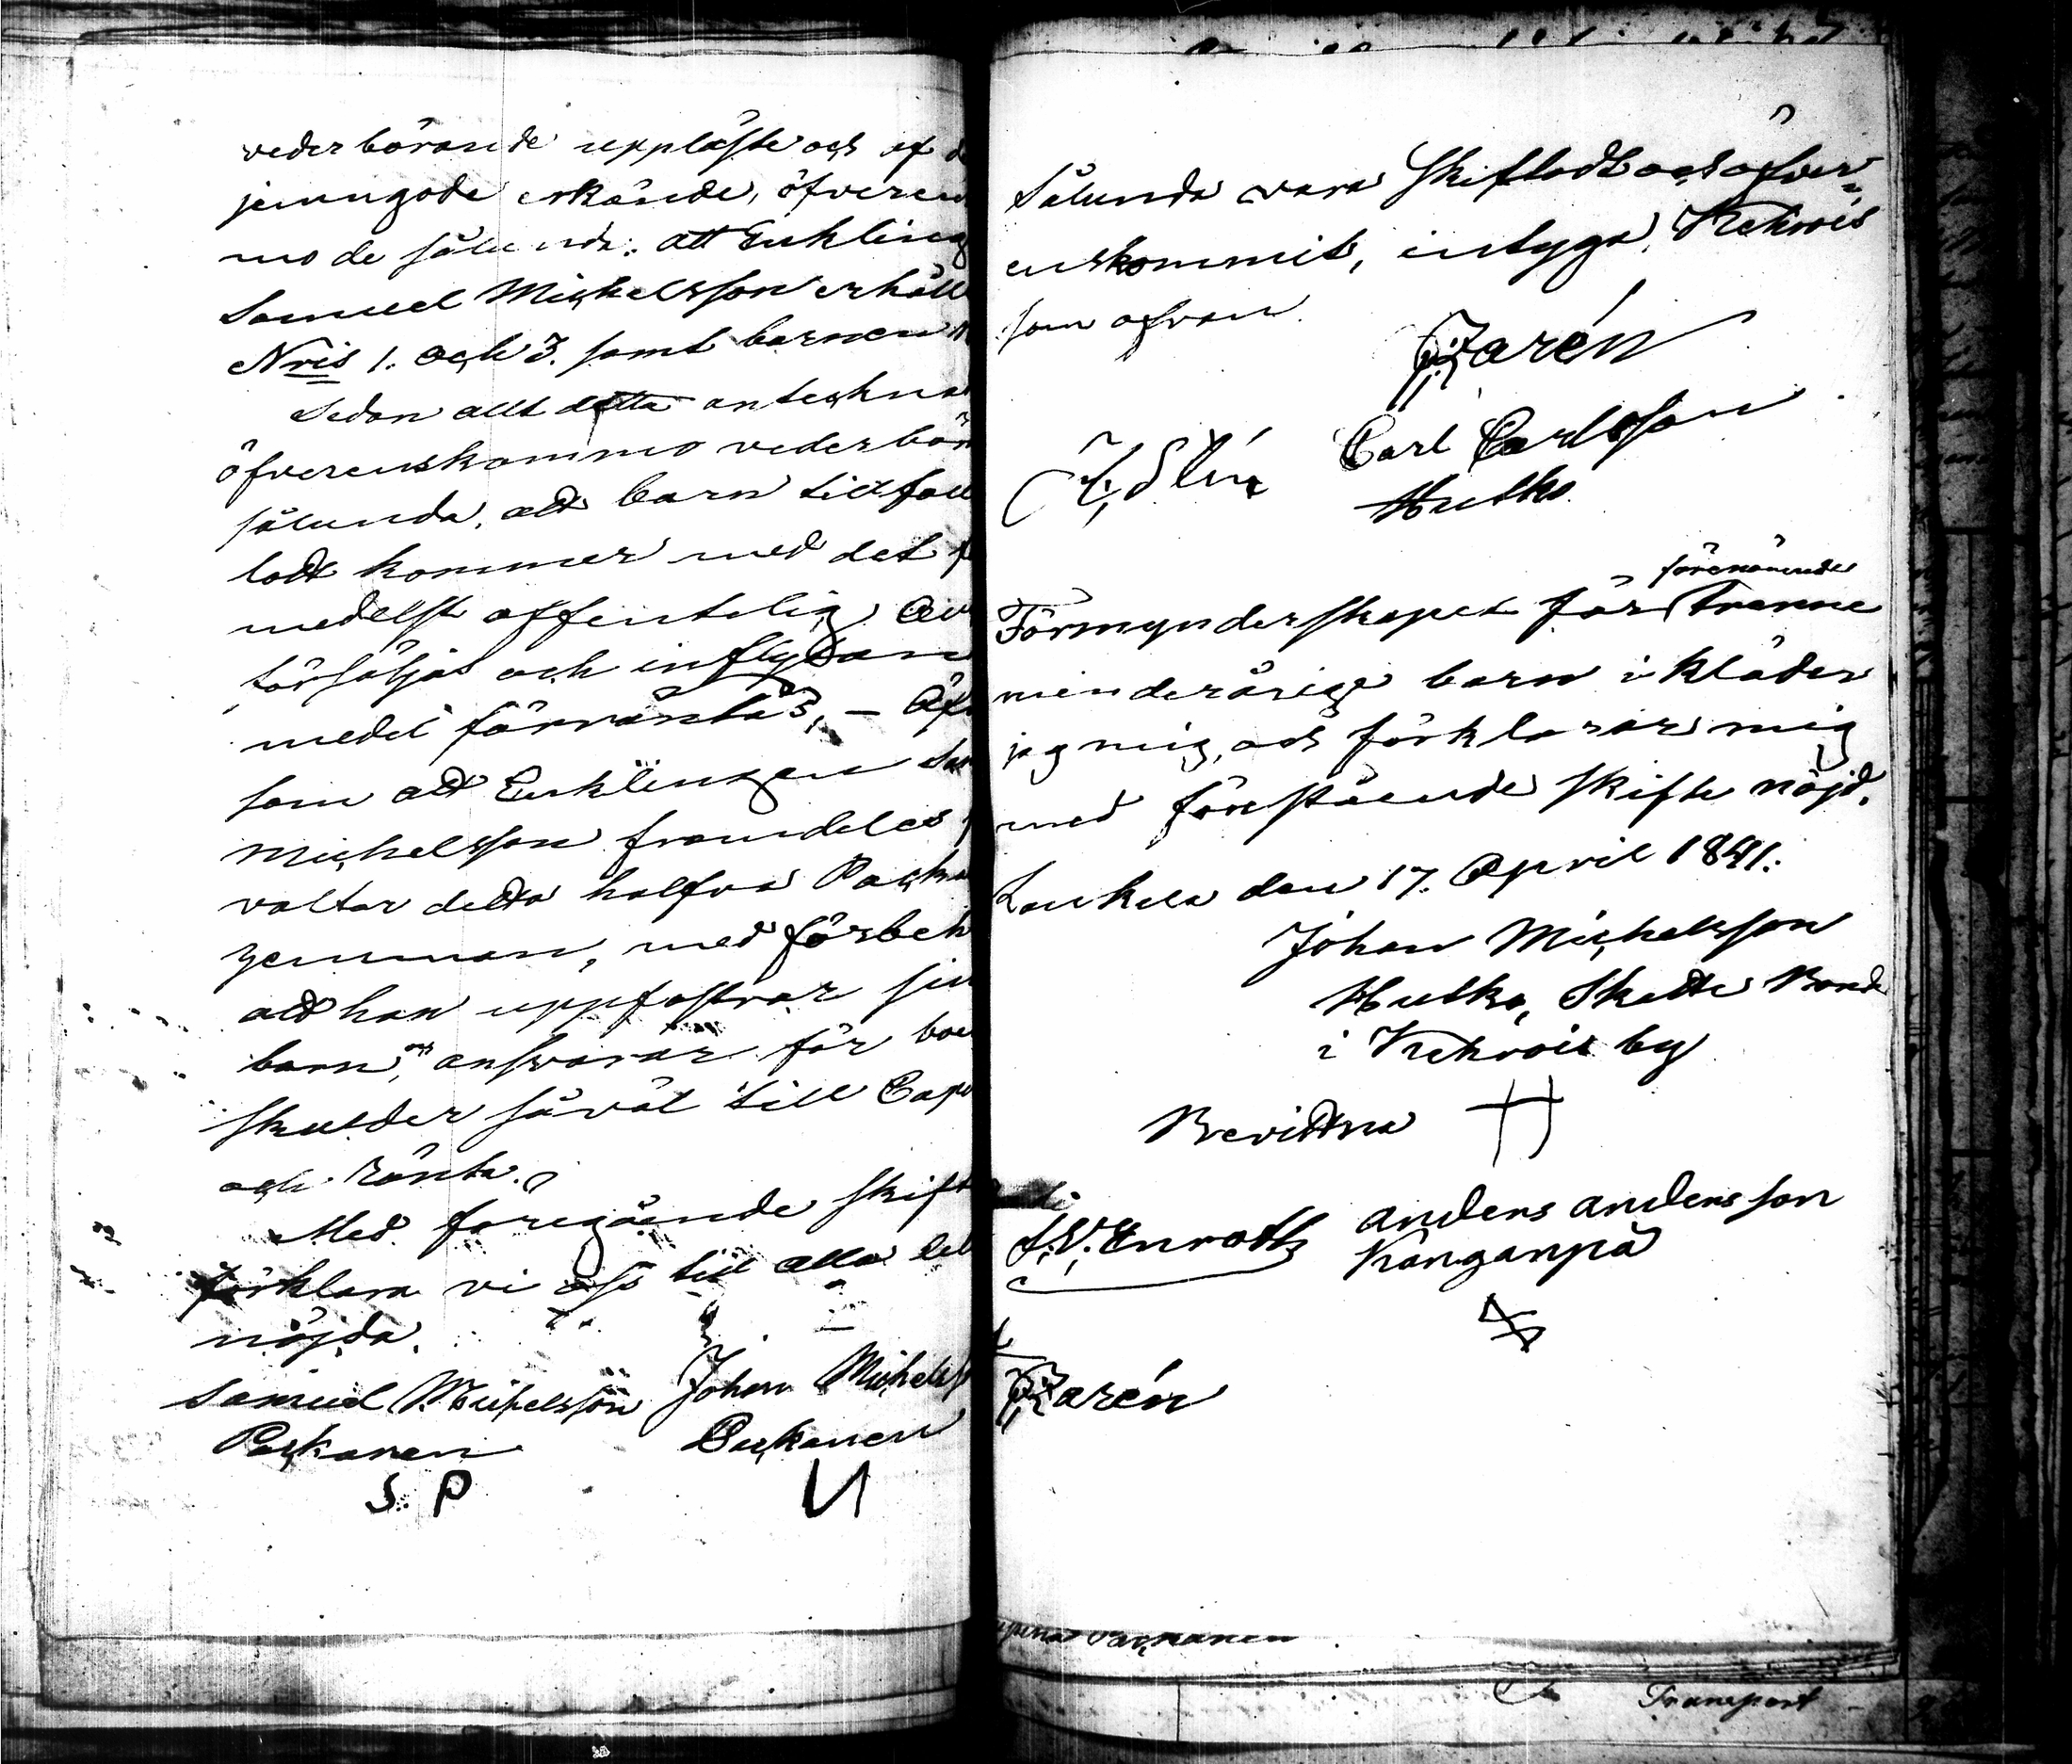 vederbörande uppläste och af d
jemngode erkände, öfveren
mo de sålunda: att Enkling
Samuel Michelsson erhåll
Nris 1. och 3. samt barnen N
Sedan allt detta anteckna
öfverenskommo vederbör
sålunda, att barn tillfall
lodt kommer med det
medelst offentelig Au
försäljas och inflydan
medel förräntas, — Äf
som att Enklingen Sa
Michelsson framdeles
valtar detta halfva Packa
hemman, med förbeh
att han uppfostrar sin
barn, och ansvarar för bo
skulder såväl till Cap
och ränta.
Med föregående skift
förklara vi oss till alla del
nöjda.
Samuel Michelsson Johan Michels
Packanen Packanen
S. P
Sålunda vara skiftadt och öfver-
enskommit, intyga, Kekrois
som ofvan.
Zarén
Carl Carlsson
Hutka
förenämnde
Förmynderskapet för Tranne
minderårige barn i kläder
jag mig, och förklarar mig
med förestående skifte nöjd.
Laukela den 17. April 1841.
Johan Michelsson
Hutka, Skatte Bonde
i Kekrois by
Bevittna
S. V. Enroth Anders Andersson
Kanganpä
Zarén
Packanen
Transport